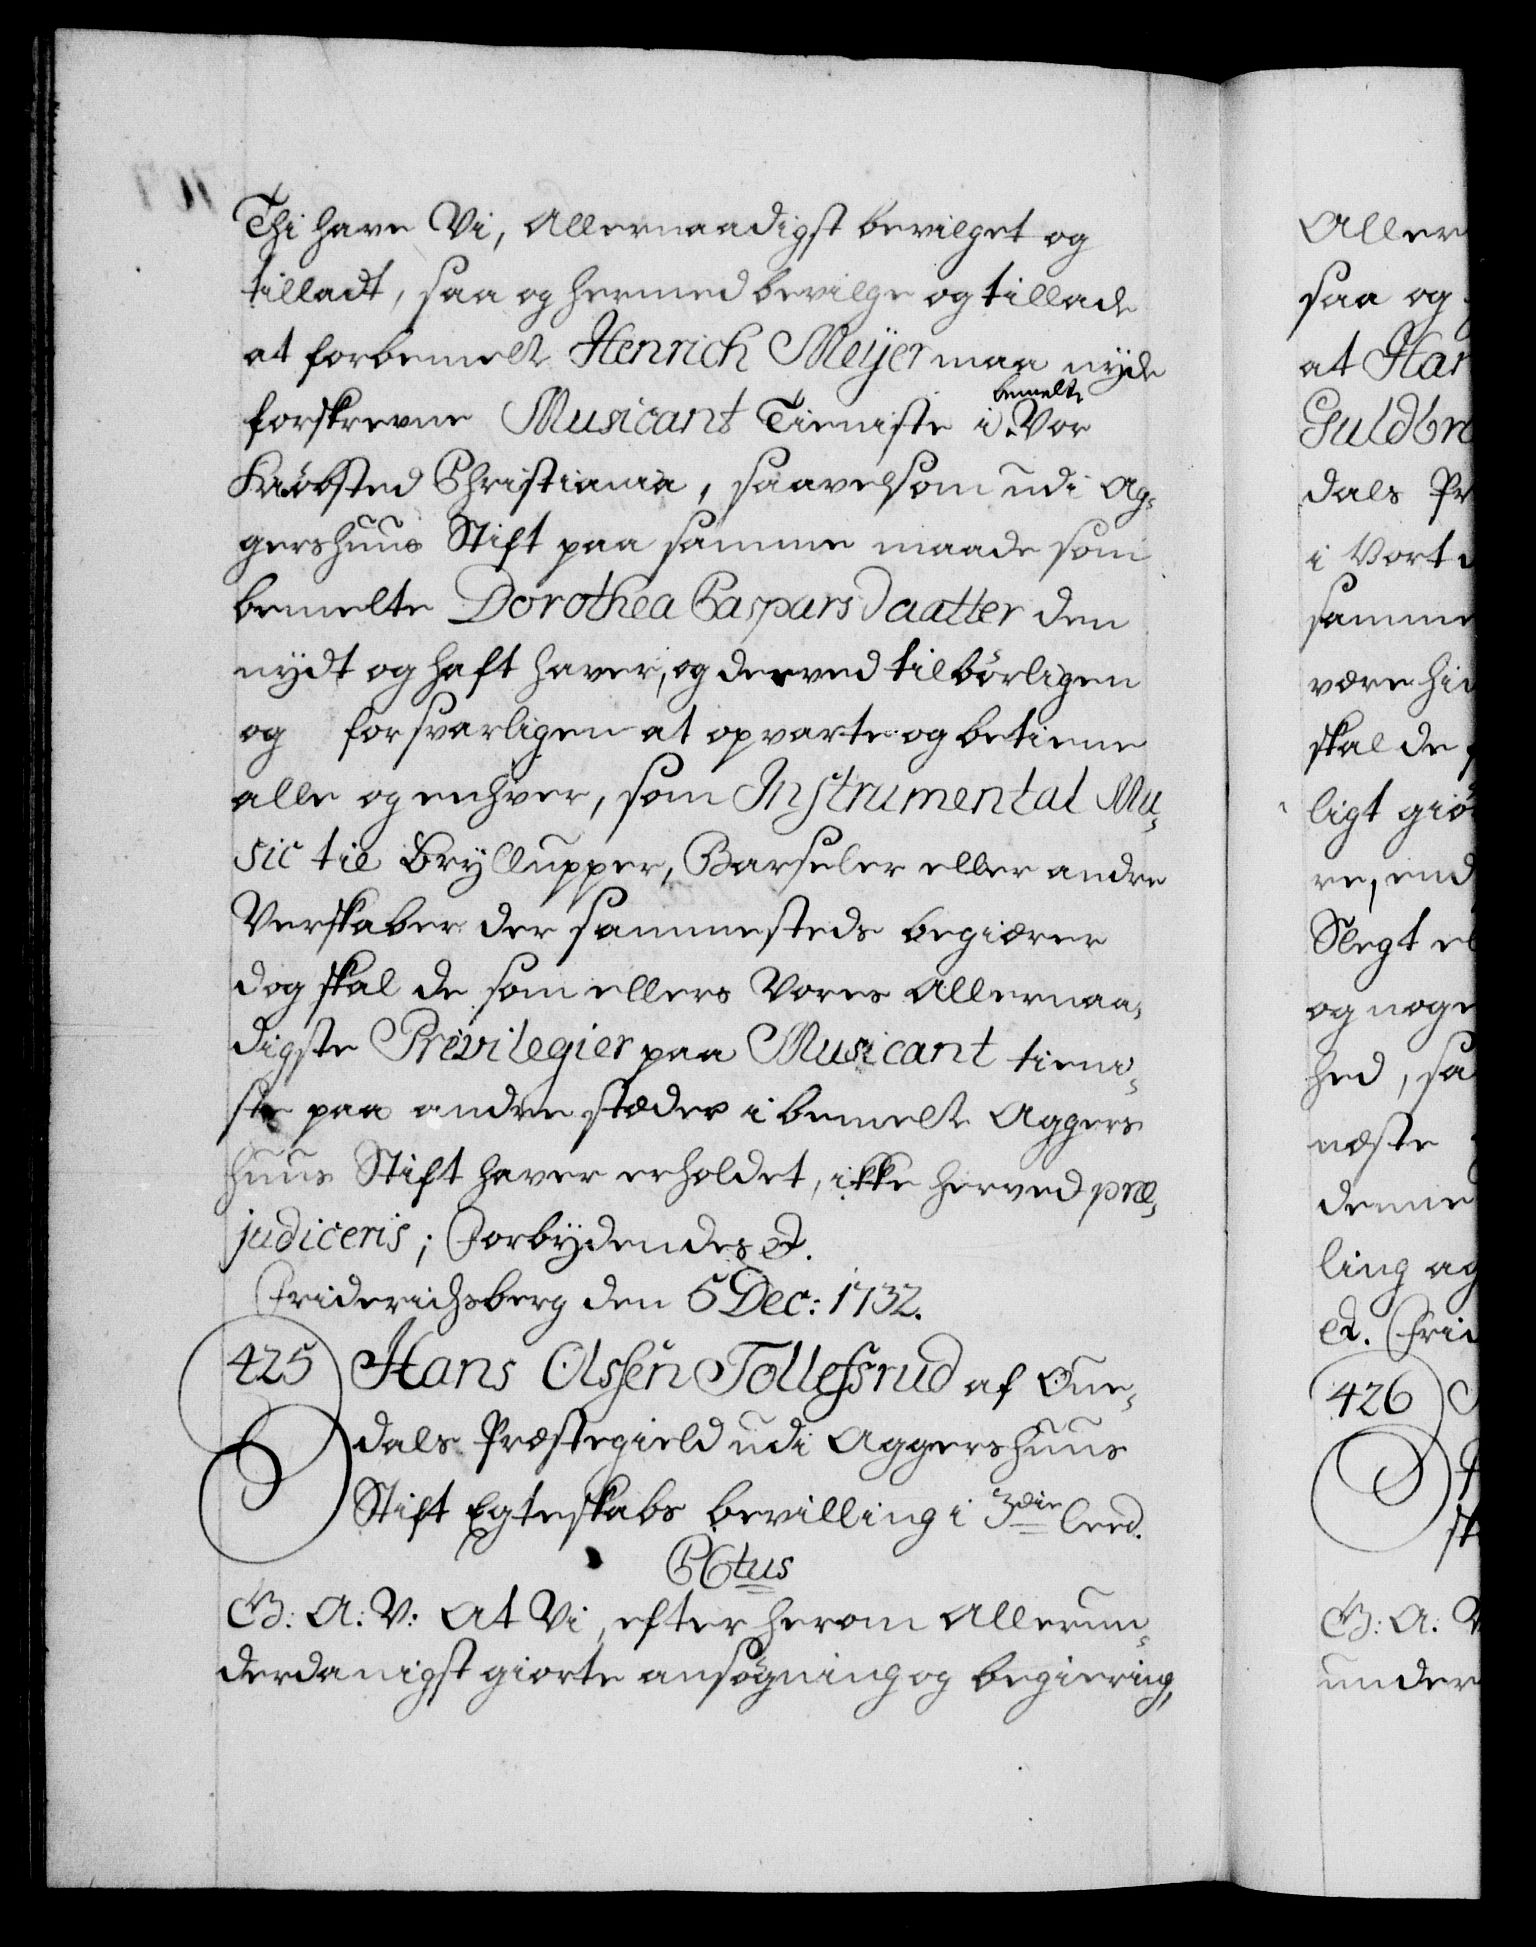 Thi have Vi, Allernaadigst bevilget og
tilladt, saa og hermed bevilge og tillade
at forbemelte Henrich Meijer maa nyde
bemelte
forskrevne Musicant Tieniste i Vor
Kiøbsted Christiania, saavelsom udi Ag-
gershuus Stift paa samme maade som
bemelte Dorothea Caspars Daatter den
nydt og haft haver, og derved tilbørligen
og forsvarligen at opvarte og betiene
alle og enhver, som Instrumental Mu-
sic til Bryllupper, Barseler eller andre
Verskaber der sammesteds begiærer
dog skal de som ellers Vores Allernaa-
digste Privilegier paa Musicant tieni-
ste paa andre stæder i bemelte Aggers
huus Stift haver erholdet, ikke herved præ-
judiceris; Forbydendes &.
Friderichsberg den 5 Dec: 1732.
425 Hans Olssen Tollefsrud af Oue-
dals Præstegield udi Aggershuus
Stift Egteskabs bevilling i 3die Leed.
CCtus
G: A: V: At Vi, efter herom Allerun-
derdanigst giorte ansøgning og begiering,
Aller
saa og
at Han
Guldbr
dals Pr
i Vort
samme
være hi
skal de
ligt giø
re, end
Slegt el
og noge
hed, sa
næste
denne
ling ag
&. Frid
426
sk
G: A: V
under